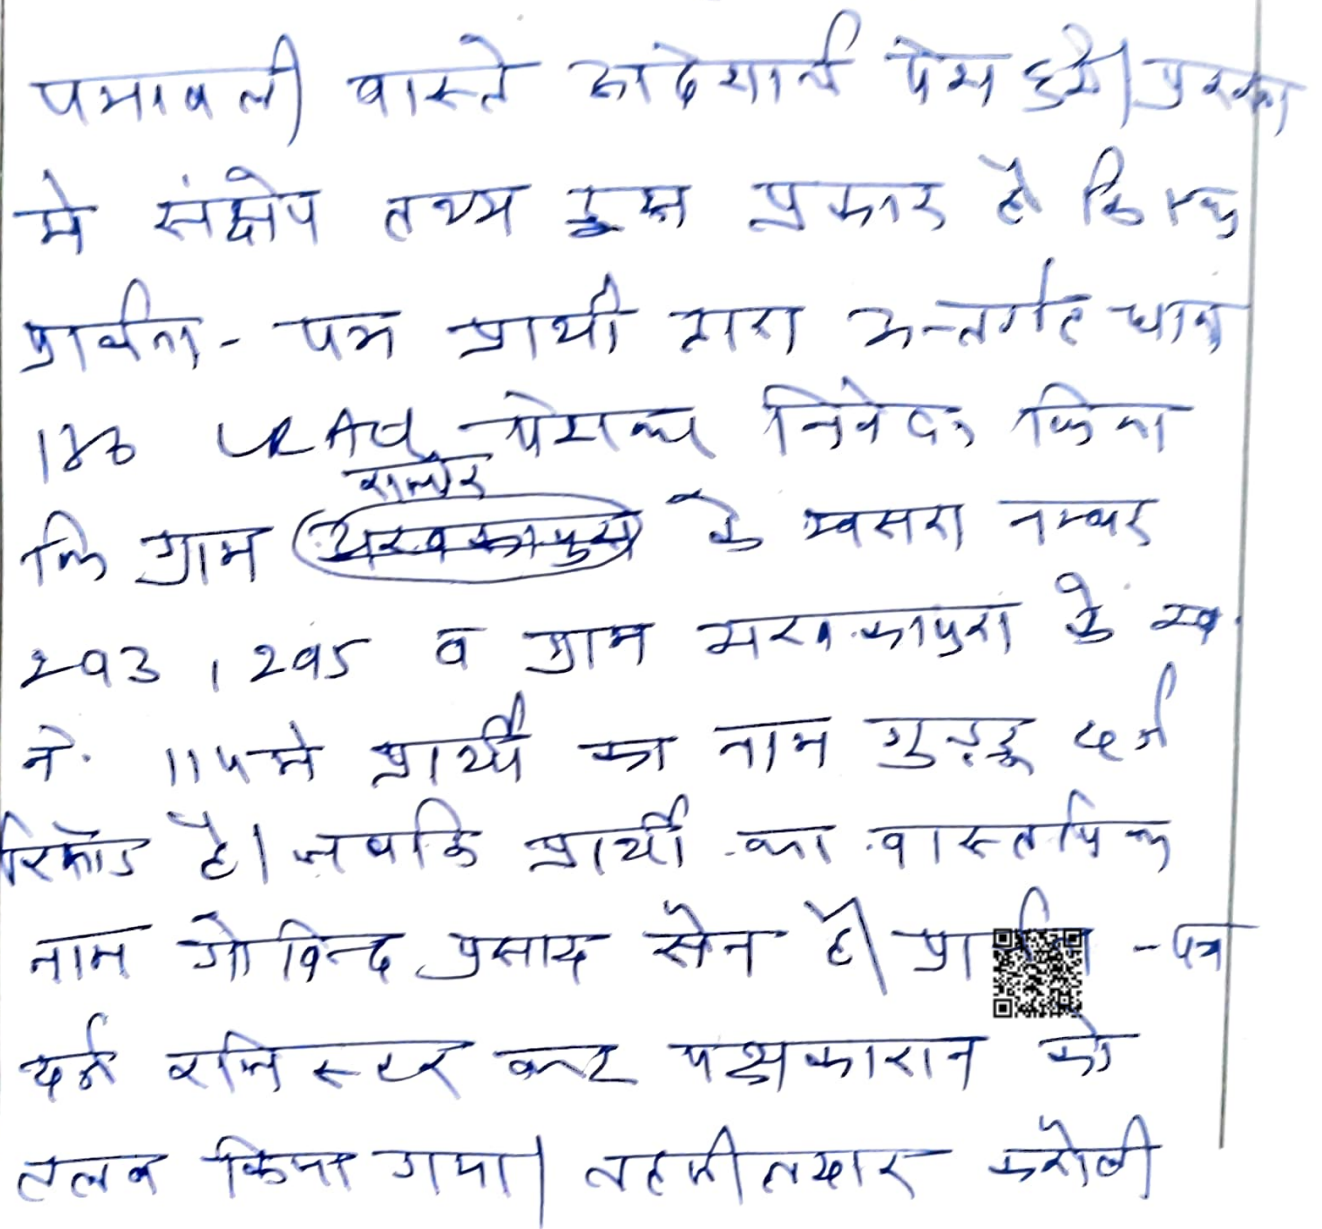 पत्रावली वास्ते आदेशार्थ पेश हुई। प्रकरण
में संक्षेप तथ्य इस प्रकार है कि
प्रार्थना-पत्र प्रार्थी द्वारा अन्तर्गत धारा
136 LR Act पेशकर निवेदन किया
कि ग्राम के खसरा नम्बर
293, 295 व ग्राम के ख.
नं. 114 में प्रार्थी का नाम गुड्डू दर्ज
रिकॉर्ड है। जबकि प्रार्थी का वास्तविक
नाम गोविन्द प्रसाद सेन है। -पत्र
दर्ज रजिस्टर कर पक्षकारान को
तलब किया गया। तहसीलदार करौली